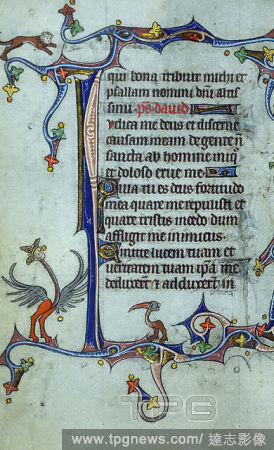 qui bona tribuit michi et
psallam nomini dni altis
simi. ps david
udica me deus et discerne
causam meam de gente n
sancta ab homine iniq
et doloso erue me
Quia tu es deus fortitudo
mea quare me repulisti et
quare tristis incedo dum
affligit me inimicus
mitte lucem tuam et
veritatem tuam ipa me
deduxert et adduxert in
TPG
www.tpgnews.com/達志影像